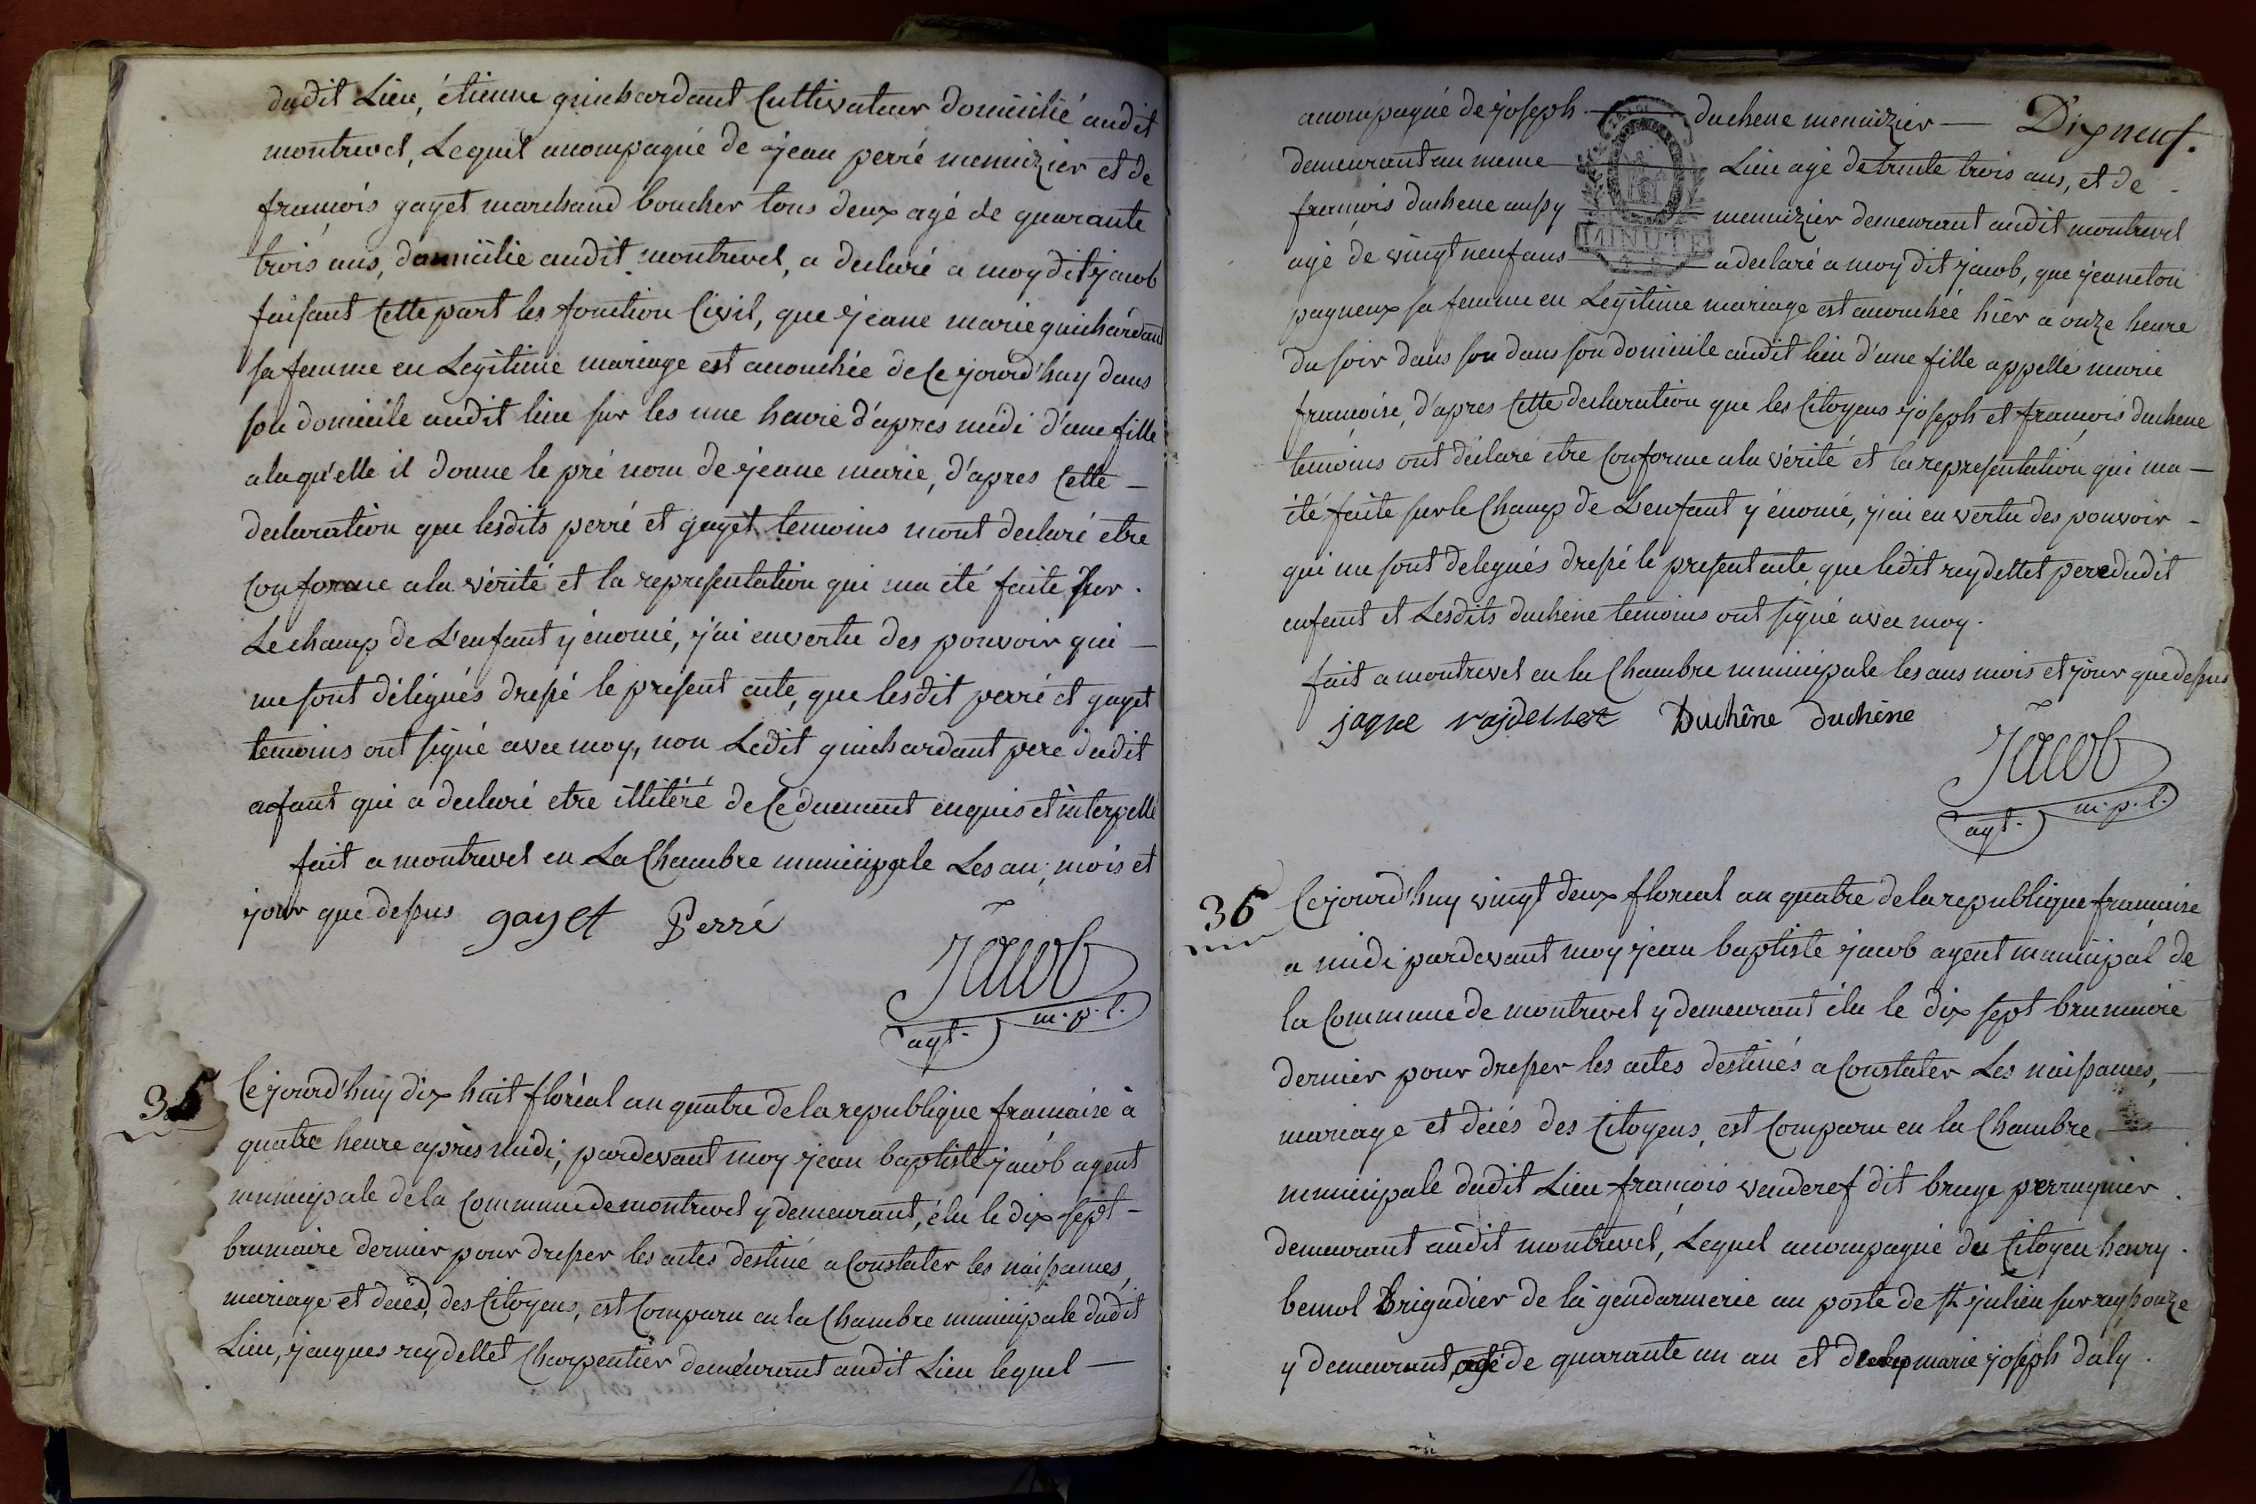 dudit Lieu, étienne guichardant Cultivateur domicilié audit
montrevel, Lequel acompagné de jean perré menuizier et de
francois gayet marchand boucher tous deux agé de quarante
trois ans, domicilie audit montrevel, a declaré a moy dit jacob
faisant Cette part les fonction Civil, que jeane marie guichardant
sa femme en Legitime mariage est acouchée de Ce jourd'huy dans
son domicile audit lieu sur les une heure d'apres midi d'une fille
alaqu'elle il donne le pré nom de jeane marie, d'apres Cette —
declaration que lesdits perré et gayet temoins mont declaré etre
Conforme ala vérité et la representation qui ma été faite sur .
Le champ de L'enfant y énomé, j'ai envertu des pouvoir qui —
me sont délégués dressé le présent acte, que lesdit perré et gayet
temoins ont signé avec moy, non Ledit guichardant pere dudit
anfant qui a declaré etre illitéré de Ce duement enquis et interpellé
fait a montrevel en La Chambre municipale Les an, mois et
jour que dessus gayet Perré
Jacob
agt. m. p. l.
35 Ce jourd'huy dix huit floréal an quatre de la republique francaise à
quatre heure après midi, pardevant moy jean baptiste jacob agent
municipale de la Commune de montrevel y demeurant, élu le dix sept —
brumaire dernier pour dresser les actes destiné a Constater les naissances,
mariage et décès, des Citoyens, est Comparu en la Chambre municipale dudit
Lieu, jacques reydellet Charpentier demeurant audit Lieu lequel —
Dix neuf.
acompagné de joseph — duchene menuizier —
demeurant au meme — Lieu agé de trente trois ans, et de -
francois duchene aussy — menuizier demeurant audit montrevel
agé de vingt neuf ans — a declaré a moy dit jacob, que jeaneton
MINUTE
pagneux sa femme en Legitime mariage est acouchée hier a onze heure
du soir dans son dans son domicile audit lieu d'une fille appellé marie
francoise, d'apres Cette declaration que les Citoyens joseph et francois duchene
temoins ont déclaré etre Conforme ala vérité et la representation qui ma —
été faite sur le Champ de L'enfant y énomé, j'ai en vertu des pouvoir -
qui me sont delegués dressé le present acte, que ledit reydellet pere dudit
enfant et Lesdits duchene temoins ont signé avec moy.
fait a montrevel en la Chambre municipale les ans mois et jour que dessus
jaque rajdellet Duchêne duchêne
Jacob
agt. m. p. l.
36 Ce jourd'huy vingt deux floreal an quatre de la republique francaise
a midi pardevant moy jean baptiste jacob agent municipal de
la Commune de montrevel y demeurant élu le dix sept brumaire
dernier pour dresser les actes destinés a Constater Les naissances, —
mariage et décés des Citoyens, est Comparu en la Chambre —
municipale dudit Lieu francois venderef dit bruge perruquier .
demeurant audit montrevel, Lequel acompagné du Citoyen henry .
bemol Brigadier de la gendarmerie au poste de st julien sur reyssouze
y demeurant, agé de quarante un an et de marie joseph daly .